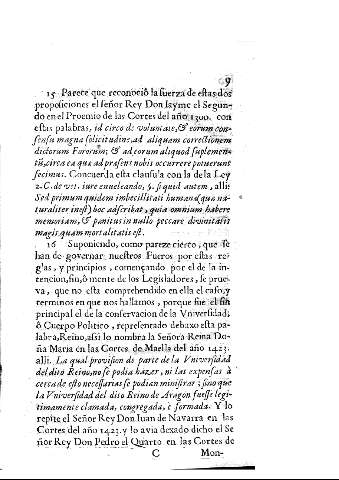 9
15 Parece que reconoció la fuerza de estas dos
proposiciones el señor Rey Don Iayme el Segun-
do en el Proemio de las Cortes del año 1300. con
estas palabras, id circo de voluntate, & eorum con-
sensu magna solicitudine, ad aliquam correctionem
dictorum Fororum; & ad eorum aliquod suplemen-
tū, circa ea quæ ad præsens nobis occurrere potuerunt
fecimus. Concuerda esta clausula con la de la Ley
2. C. de vet. iure enucleando, §. si quid autem, alli:
Sed primum quidem imbecillitati humanæ (quæ na-
turaliter inest) hoc adscribat, quia omnium habere
memoriam, & pœnitus in nullo peccare divinitatis
magis, quam mortalitatis est.
16 Suponiendo, como parece cierto, que se
han de governar nuestros Fueros por estas re-
glas, y principios, començando por el de la in-
tencion, fin, ò mente de los Legisladores, se prue-
va, que no esta comprehendido en ella el caso, y
terminos en que nos hallamos, porque fue el fin
principal el de la conservacion de la Vniversidad,
ò Cuerpo Politico, representado debaxo esta pa-
labra, Reino, assi lo nombra la Señora Reina Do-
ña Maria en las Cortes de Maella del año 1423.
alli. La qual provision de parte de la Vniversidad
del dito Reino, no se podia hazer, ni las expensas à
cerca de esto necessarias se podian ministrar; sino que
la Vniversidad del dito Reino de Aragon fuesse legi-
timamente clamada, congregada, è formada. Y lo
repite el Señor Rey Don Iuan de Navarra en las
Cortes del año 1423. y lo avia dexado dicho el Se
ñor Rey Don Pedro el Quarto en las Cortes de
C Mon-